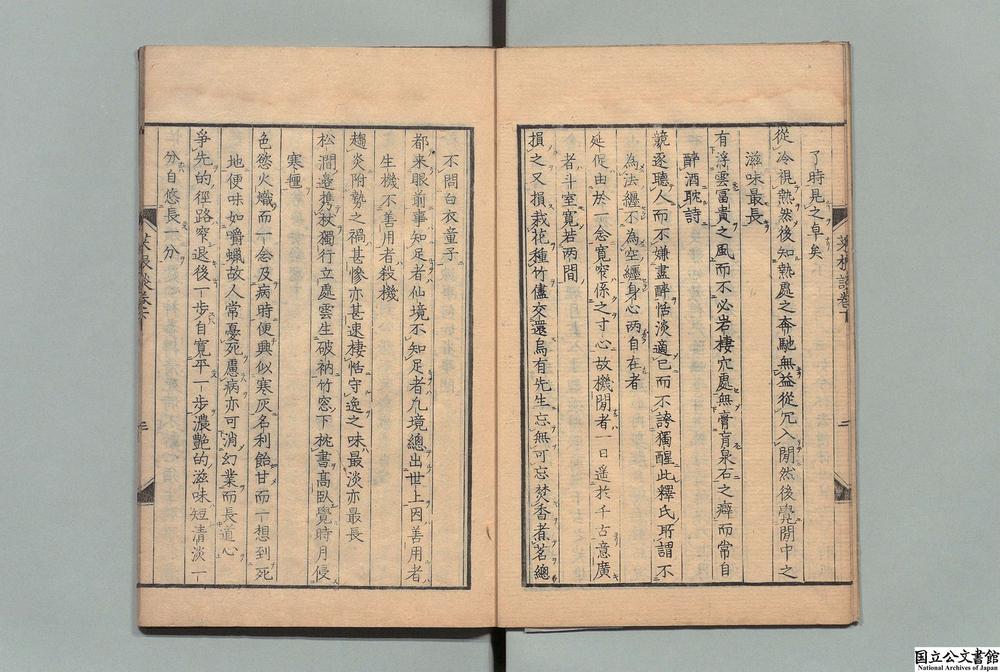 了時見之卓矣
從冷視熱然後知熱處之奔馳無益從冗入閒然後覺閒中之
滋味最長
有浮雲冨貴之風而不必岩棲穴處無膏肓泉石之癖而常自
醉酒耽詩
競逐聽人而不嫌盡醉恬淡適己而不誇獨醒此釋氏所謂不
為法纏不為空纏身心兩自在者
延促由於一念寛窄係之寸心故機閒者一日遥於千古意廣
者斗室寛若兩間
損之又損栽花種竹儘交還烏有先生忘無可忘焚香煮茗總
菜根譚卷下
二
不問白衣童子
都来眼前事知足者仙境不知足者凡境總出世上因善用者
生機不善用者殺機
趨炎附勢之禍甚慘亦甚速棲恬守逸之味最淡亦最長
松澗邉携杖獨行立處雲生破衲竹窓下枕書高臥覺時月侵
寒氊
色慾火熾而一念及病時便興似寒灰名利飴甘而一想到死
地便味如嚼蠟故人常憂死慮病亦可消幻業而長道心
爭先的徑路窄退後一步自寛平一步濃艶的滋味短清淡一
分自悠長一分
菜根談卷下
三
国立公文書館
National Archives of Japan